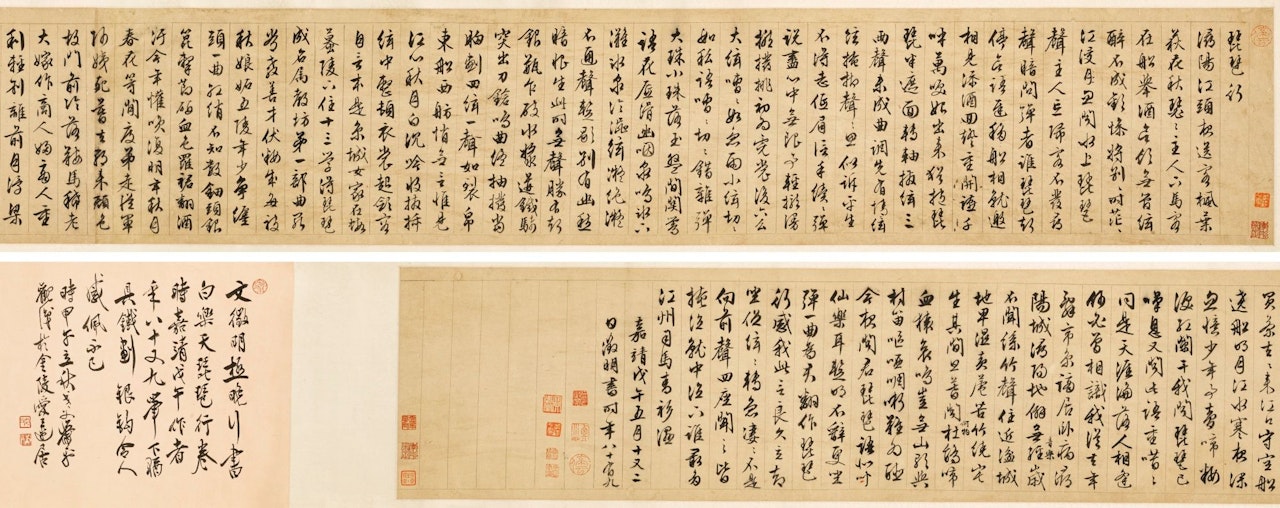 琵琶行
潯陽江頭夜送客楓葉
荻花秋瑟〻主人下馬客
在船舉酒欲飲無管絃
醉不成歡慘將別〻時茫〻
江浸月忽聞水上琵琶
聲主人忘歸客不發尋
聲暗問彈者誰琵琶聲
停欲語遲移船相就邀
相見添酒回燈重開讌千
呼萬喚始出來猶抱琵
琶半遮面轉軸撥絃三
兩聲未成曲調先有情絃
絃掩抑聲〻思似訴平生
不得志低眉信手續〻彈
說盡心中無限事輕攏慢
撚撥挑初為霓裳後六么
大絃嘈〻如急雨小絃切〻
如私語嘈〻切〻錯雜彈
大珠小珠落玉盤間關鶯
語花底滑幽咽泉流冰下
灘冰泉冷澀絃凝絕凝
不通聲暫歇別有幽愁
暗恨生此時無聲勝有聲
銀瓶乍破水漿迸鐵騎
突出刀鎗鳴曲終抽撥當
胸劃四絃一聲如裂帛
東船西舫悄無言惟見
江心秋月白沉吟收撥插
絃中整頓衣裳起斂容
自言本是京城女家在蝦
蟇陵下住十三學得琵琶
成名屬教坊第一部曲罷
常教善才伏粧成每被
秋娘妬五陵年少爭纏
頭一曲紅綃不知數鈿頭銀
篦擊節碎血色羅裙翻酒
汙今年懽笑復明年秋月
春花等閒度弟走從軍
阿姨死暮去朝來顏色
故門前冷落鞍馬稀老
大嫁作商人婦商人重
利輕別離前月浮梁
買茶去〻來江口守空船
遶船明月江水寒夜深
忽憶少年事夢啼粧
淚紅闌干我聞琵琶已
嘆息又聞此語重喞〻
同是天涯淪落人相逢
何必曾相識我從去年
辭帝京謫居臥病潯
陽城潯陽地僻無音樂終歲
不聞絲竹聲住近湓城
地卑濕黃蘆苦竹繞宅
生其間旦暮聞何物杜鵑啼
血猿哀鳴豈無山歌與
村笛嘔啞啁哳難為聽
今夜聞君琵琶語如聽
仙樂耳暫明不辭更坐
彈一曲為君翻作琵琶
行感我此言良久立却
坐促絃〻轉急淒〻不是
向前聲四座聞之皆
掩泣就中泣下誰最多
江州司馬青衫濕
嘉靖戊午五月十又二
日徵明書時年八十有九
文徵明極晚行書
白樂天琵琶行卷
時嘉靖戊午作者
年八十又九舉下橋
具鐵劃銀鉤令人
感佩不已
時甲午立秋
觀後於金陵愛蓮居